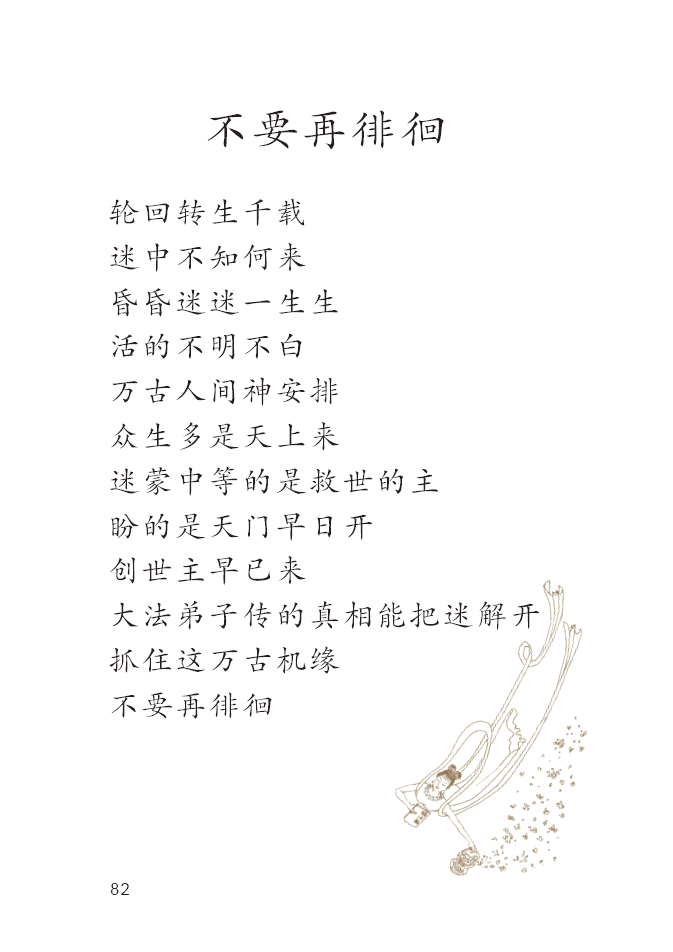 不要再徘徊
轮回转生千载
迷中不知何来
昏昏迷迷一生生
活的不明不白
万古人间神安排
众生多是天上来
迷蒙中等的是救世的主
盼的是天门早日开
创世主早已来
大法弟子传的真相能把迷解开
抓住这万古机缘
不要再徘徊
82